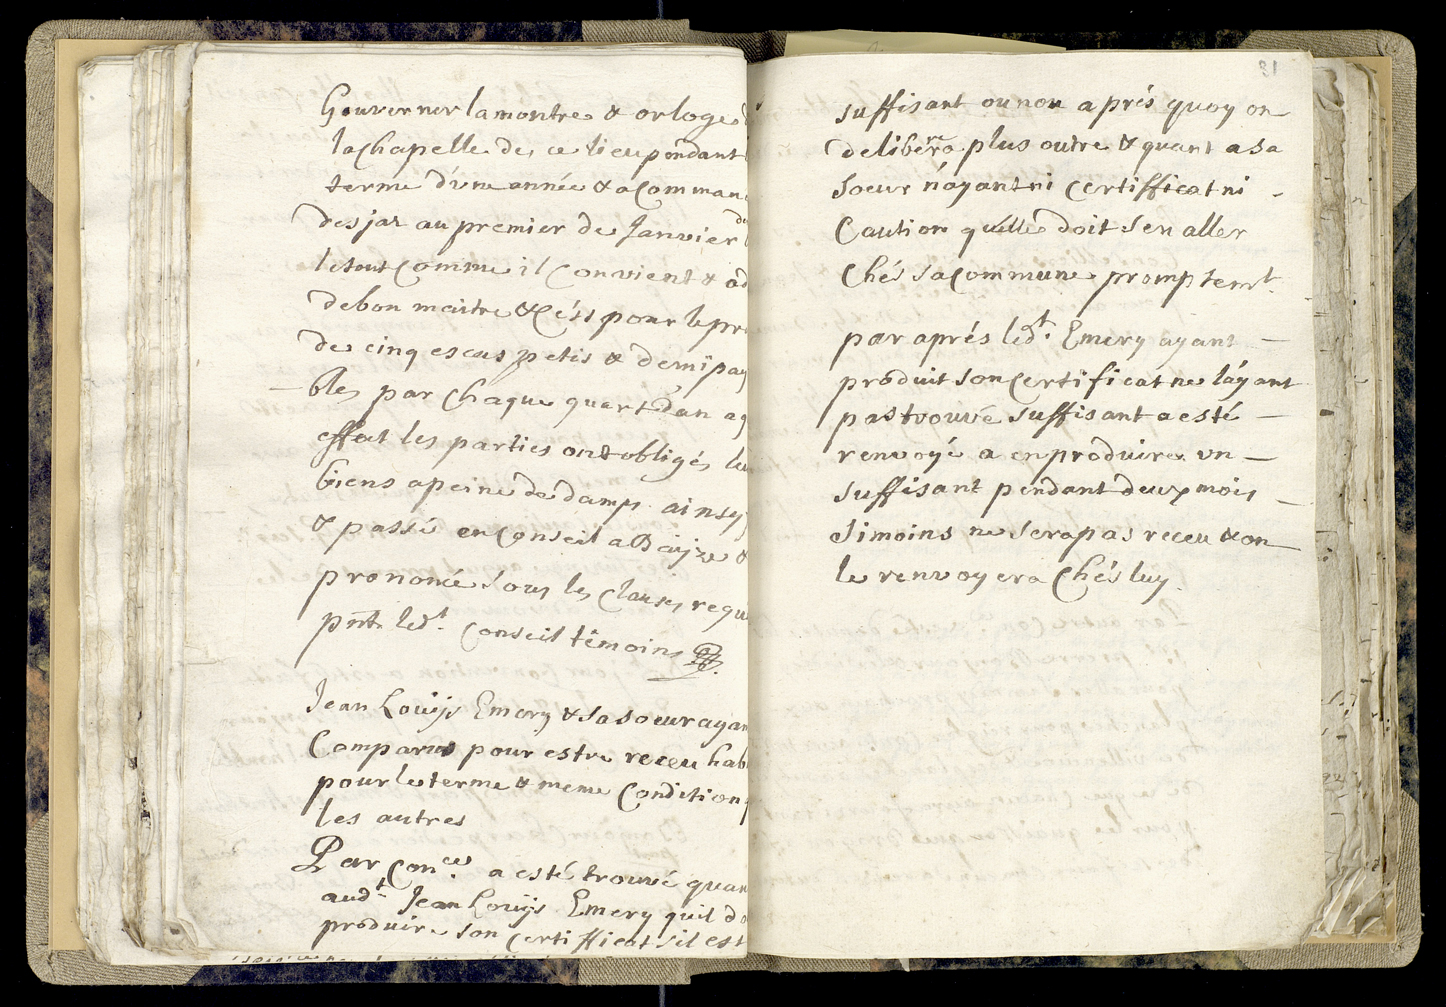 Gouverner la montre & orloge
la Chapelle de ce lieu pendant
terme d'une année & a Comman
desja au premier de Janvier
le tout Comme il Convient &
de bon maitre & C'est pour le pr
de cinq escus petis & demi pay
bles par Chaque quart d'an a
effect les parties ont obligés
biens a peine de damps. ainsy
& passé en Conseil
prononcé sous les Clauses requ
pnt. led.t Conseil têmoins
Jean Louijs Emery & sa soeur ayan
Comparus pour estre receu hab
pour le terme & meme Condition
les autres
Par Con.ce a esté trouvé quan
aud.t Jean Louijs Emery qu'il do
produire son Certifficat s'il est
13
suffisant ou non aprés quoy on
delibera plus outre & quant a sa
soeur n'ayant ni Certifficat ni
Caution qu'elle doit s'en aller
Chés sa Commune promptem.t
par aprés led.t Emery ayant
produit son Certificat ne l'ayant
pas trouvé suffisant a esté
renvoyé a en produire un
suffisant pendant deux mois
Si moins ne sera pas receu & on
le renvoyera Chés luy.